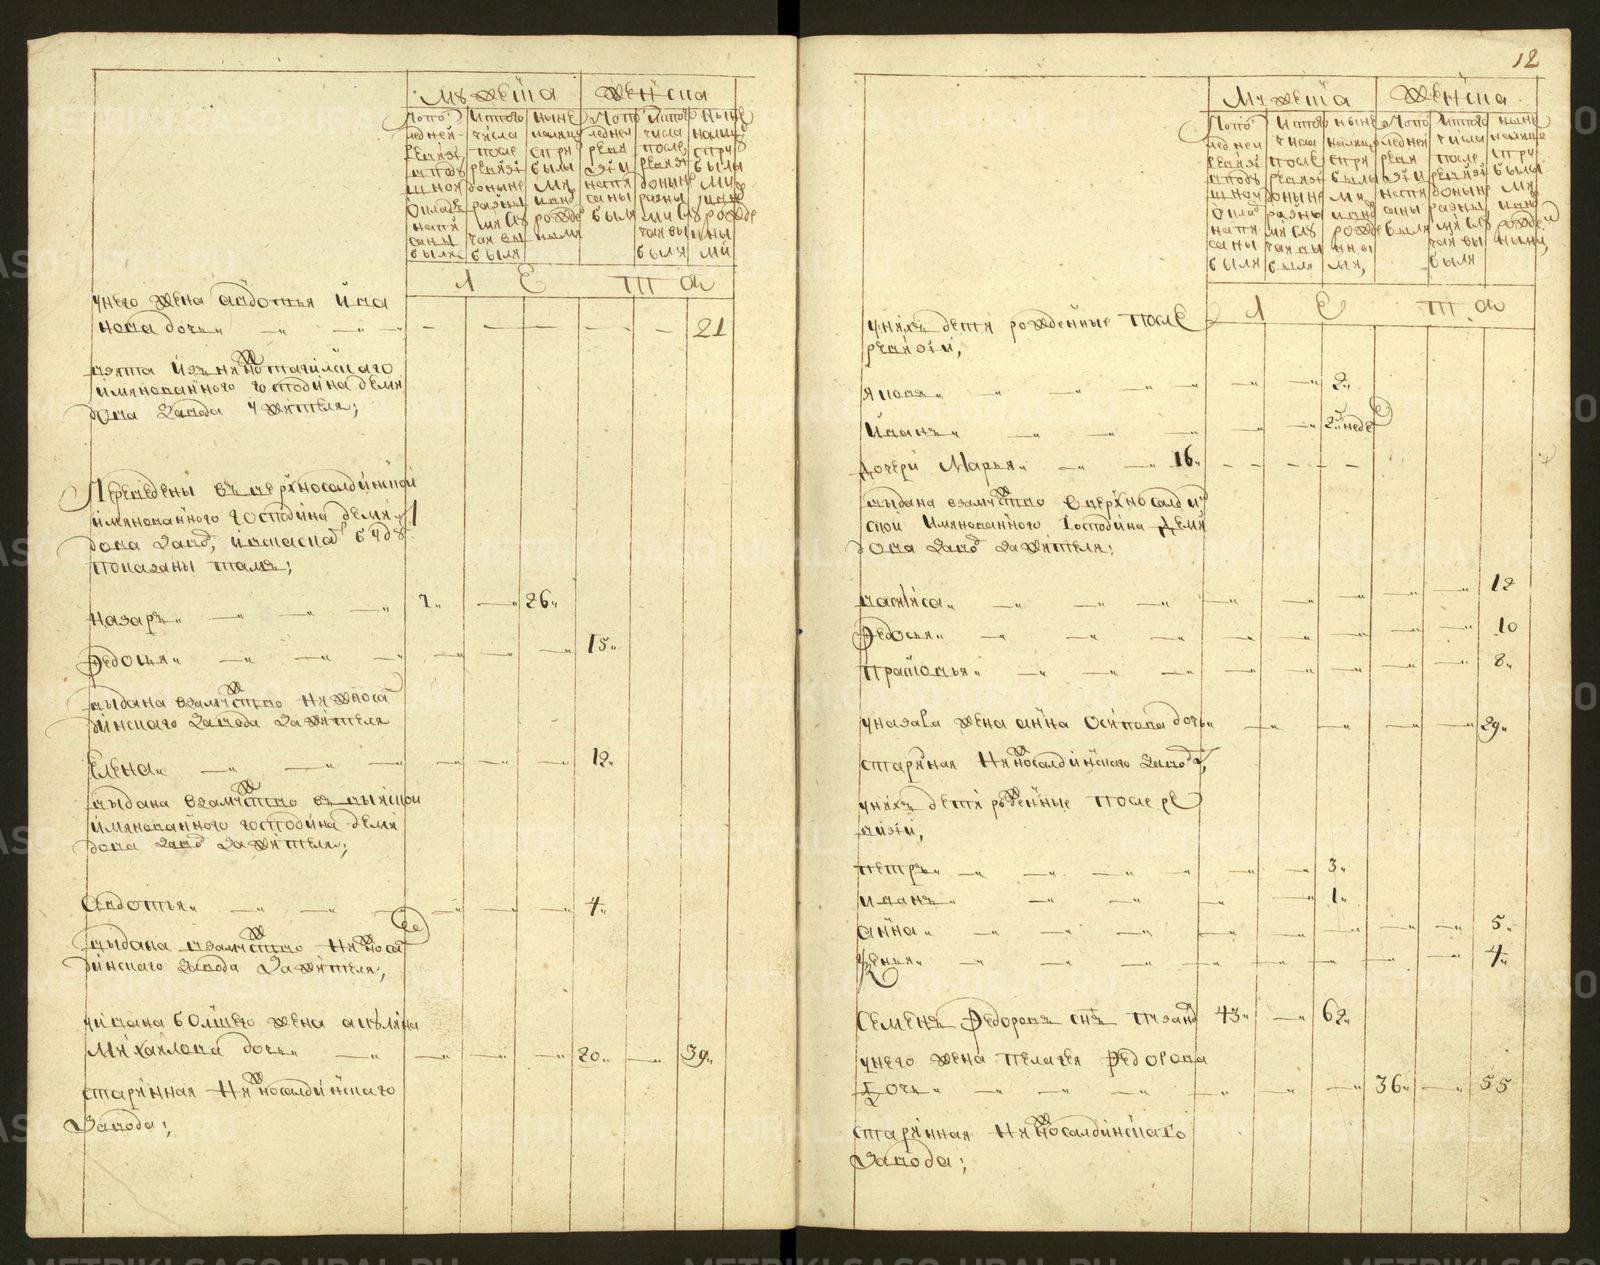 Мужеска
Женска
По по
следней
ревизӣ
в поду
шной
Оклад
напи
саны
были
И того
числа
после
ревизӣ
доныне
разны
ми слу
чая вы
были
ныне
налицо
с при
были
ми
и но
рожде
ными
По по
следней
реви
зӣи
напи
саны
были
И того
числа
после
ревизӣ
доныне
разны
ми слу
чаи вы
были
ныне
налиц
с при
были
ми
и но
рожде
ны
ми
Л Е Т А
унего жена авдотья ива
нова дочь 21
взята изъ нижнотагилскаго
имянованного господина деми
дова завода у жителя;
Переведены въ верхносалдинской
имянованного господина деми
дова завод, и в списка буду
показаны тамъ;
Назаръ 7 26
Федосья 15
выдана взамужство нижноса
динскаго завода за жителя
Елена 12
выдана взамужство въ выйской
имянованного господина деми
дова завод за жителя;
Авдотья 4
выдана взамужство нижноса
динскаго завода за жителя;
уивана болшего жена акулина
Михайлова дочь 20 39
старинная нижносалдинскаго
завода;
12
Мужеска
Женска
По по
следней
ревизӣ
в поду
шной
Оклад
напи
саны
были
И того
числа
после
ревизӣ
доныне
разны
ми слу
чая вы
были
ныне
налицо
с при
были
ми
и но
рожде
ны
ми,
По по
следней
реви
зӣи
напи
саны
были
И того
числа
после
ревизӣ
доныне
разны
ми слу
чая вы
были
ныне
налице
с при
были
ми
и но
рожде
ными,
Л Е Т А
унихъ дети рожденные после
ревизӣи,
Яковъ 2
Иванъ 25 неде
дочери Марья 16
выдана взамужство в верхносалди
ской имянованного господина деми
дова завод за жителя;
василиса 12
Федосья 10
Прасковья 8
уназара жена анна Осипова дочь 29
старинная нижносалдинскаго завода,
унихъ дети рожденные после ре
визӣи,
петръ 3
иванъ 1
анна 5
ксенья 4
Семенъ Федоровъ снъ пузан 43 62
унего жена пелагея Федорова
дочь 36 55
старинная нижносалдинскаго
завода;